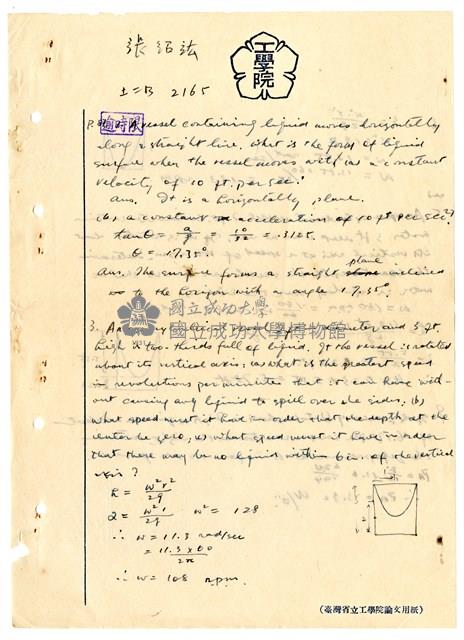 張紹法
工學院
土二B 2165
逾時限
P. 91 A vessel containing liquid moves horizontally
along a straight line. What is the form of liquid
surface when the vessel moves with (a) a constant
velocity of 10 ft. per sec?
Ans. It is a horizontally plane.
(b) a constant acceleration of 10 ft per sec²?
tanθ = a/g = 10/32 = .3125.
θ = 17.35°.
plane
Ans. The surface forms a straight inclined
to the horizon with a angle 17.35°.
國立成功大學
國立成功大學博物館
3. An and 3 ft.
high is two-thirds full of liquid. If the vessel is rotated
about its vertical axis; (a) what is the greatest speed
in revolutions per minutes that it can have with-
out causing any liquid to spill over the sides; (b)
what speed must it have in order that the depth at the
center be zero; (c) what speed must it have in order
that there may be no liquid within 6 in. of the vertical
axis?
h = w²r²/2g
2 = w²·1/2g w² = 128
∴ w = 11.3 rad/sec
= 11.3 × 60/2π
∴ w = 108 rpm.
(臺灣省立工學院論文用紙)